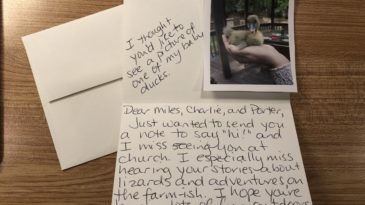 I thought
you'd like to
see a picture of
one of my baby
ducks.
Dear Miles, Charlie, and Porter,
Just wanted to send you
a note to say "hi!" and
I miss seeing you at
church. I especially miss
hearing your stories about
lizards and adventures on
the farm-ish. I hope you're